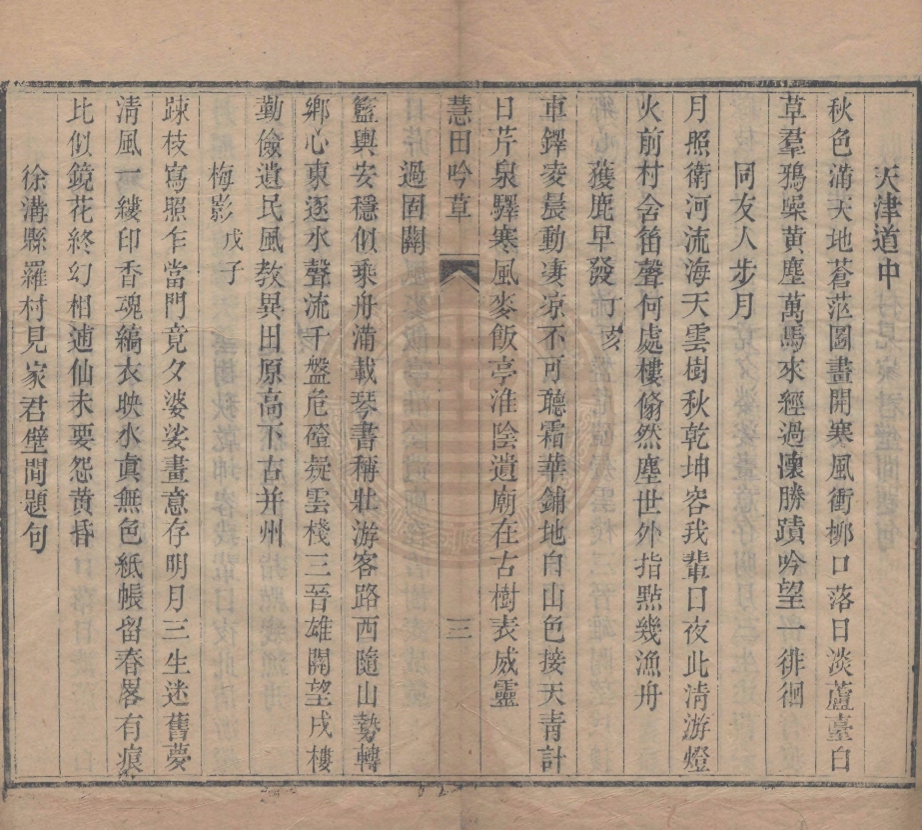 天津道中
秋色滿天地蒼茫圖畫開寒風衝柳口落日淡蘆臺白
草羣鴉噪黃塵萬馬來經過懷勝蹟吟望一徘徊
同友人步月
月照衛河流海天雲樹秋乾坤容我輩日夜此淸游燈
火前村舍笛聲何處樓翛然塵世外指點幾漁舟
獲鹿早發丁亥
車鐸凌晨動凄凉不可聽霜華鋪地白山色接天靑計
日芹泉驛寒風麥飯亭淮陰遺廟在古樹表威靈
慧田吟草 三
過固關
籃輿安穩似乘舟滿載琴書稱壯游客路西隨山勢轉
鄉心東逐水聲流千盤危磴疑雲棧三晉雄關望戍樓
勤儉遺民風敎異田原高下古并州
梅影戊子
踈枝寫照乍當門竟夕婆娑畫意存明月三生迷舊夢
淸風一縷印香魂縞衣映水眞無色紙帳留春畧有痕
比似鏡花終幻相逋仙未要怨黃昏
徐溝縣羅村見家君壁間題句